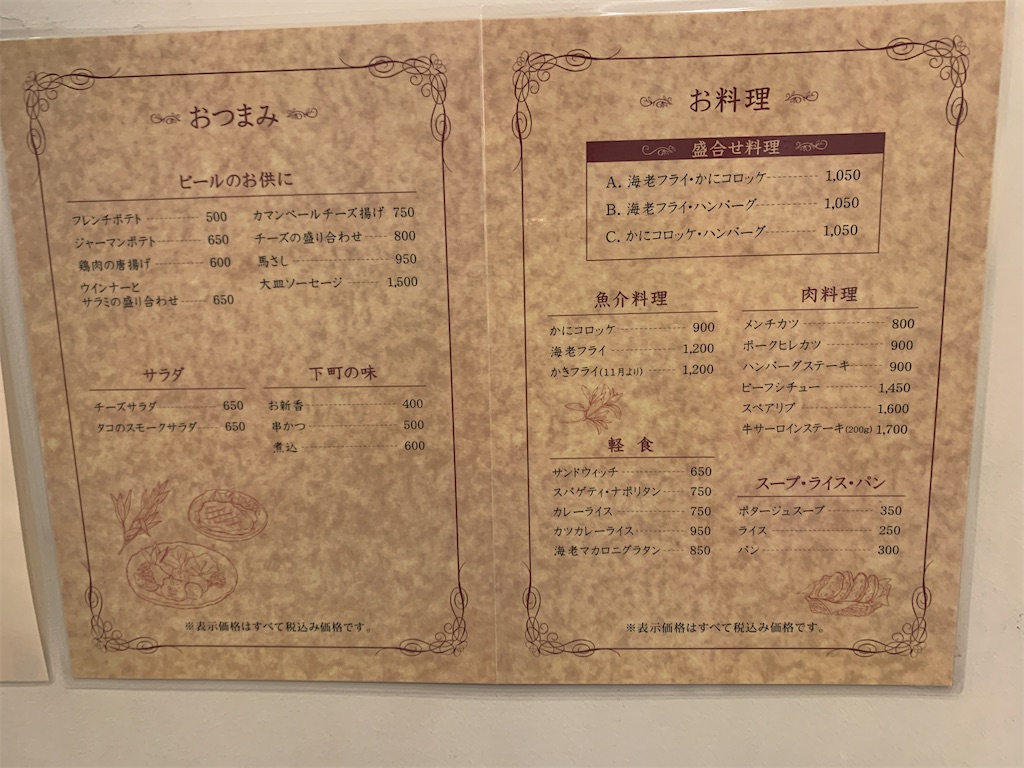 おつまみ
ビールのお供に
フレンチポテト 500
ジャーマンポテト 650
鶏肉の唐揚げ 600
ウインナーと
サラミの盛り合わせ 650
カマンベールチーズ揚げ 750
チーズの盛り合わせ 800
馬さし 950
大皿ソーセージ 1,500
サラダ
チーズサラダ 650
タコのスモークサラダ 650
下町の味
お新香 400
串かつ 500
煮込 600
※表示価格はすべて税込み価格です。
お料理
盛合せ料理
A. 海老フライ・かにコロッケ 1,050
B. 海老フライ・ハンバーグ 1,050
C. かにコロッケ・ハンバーグ 1,050
魚介料理
かにコロッケ 900
海老フライ 1,200
かきフライ(11月より) 1,200
軽 食
サンドウィッチ 650
スパゲティ・ナポリタン 750
カレーライス 750
カツカレーライス 950
海老マカロニグラタン 850
肉料理
メンチカツ 800
ポークヒレカツ 900
ハンバーグステーキ 900
ビーフシチュー 1,450
スペアリブ 1,600
牛サーロインステーキ(200g) 1,700
スープ・ライス・パン
ポタージュスープ 350
ライス 250
パン 300
※表示価格はすべて税込み価格です。